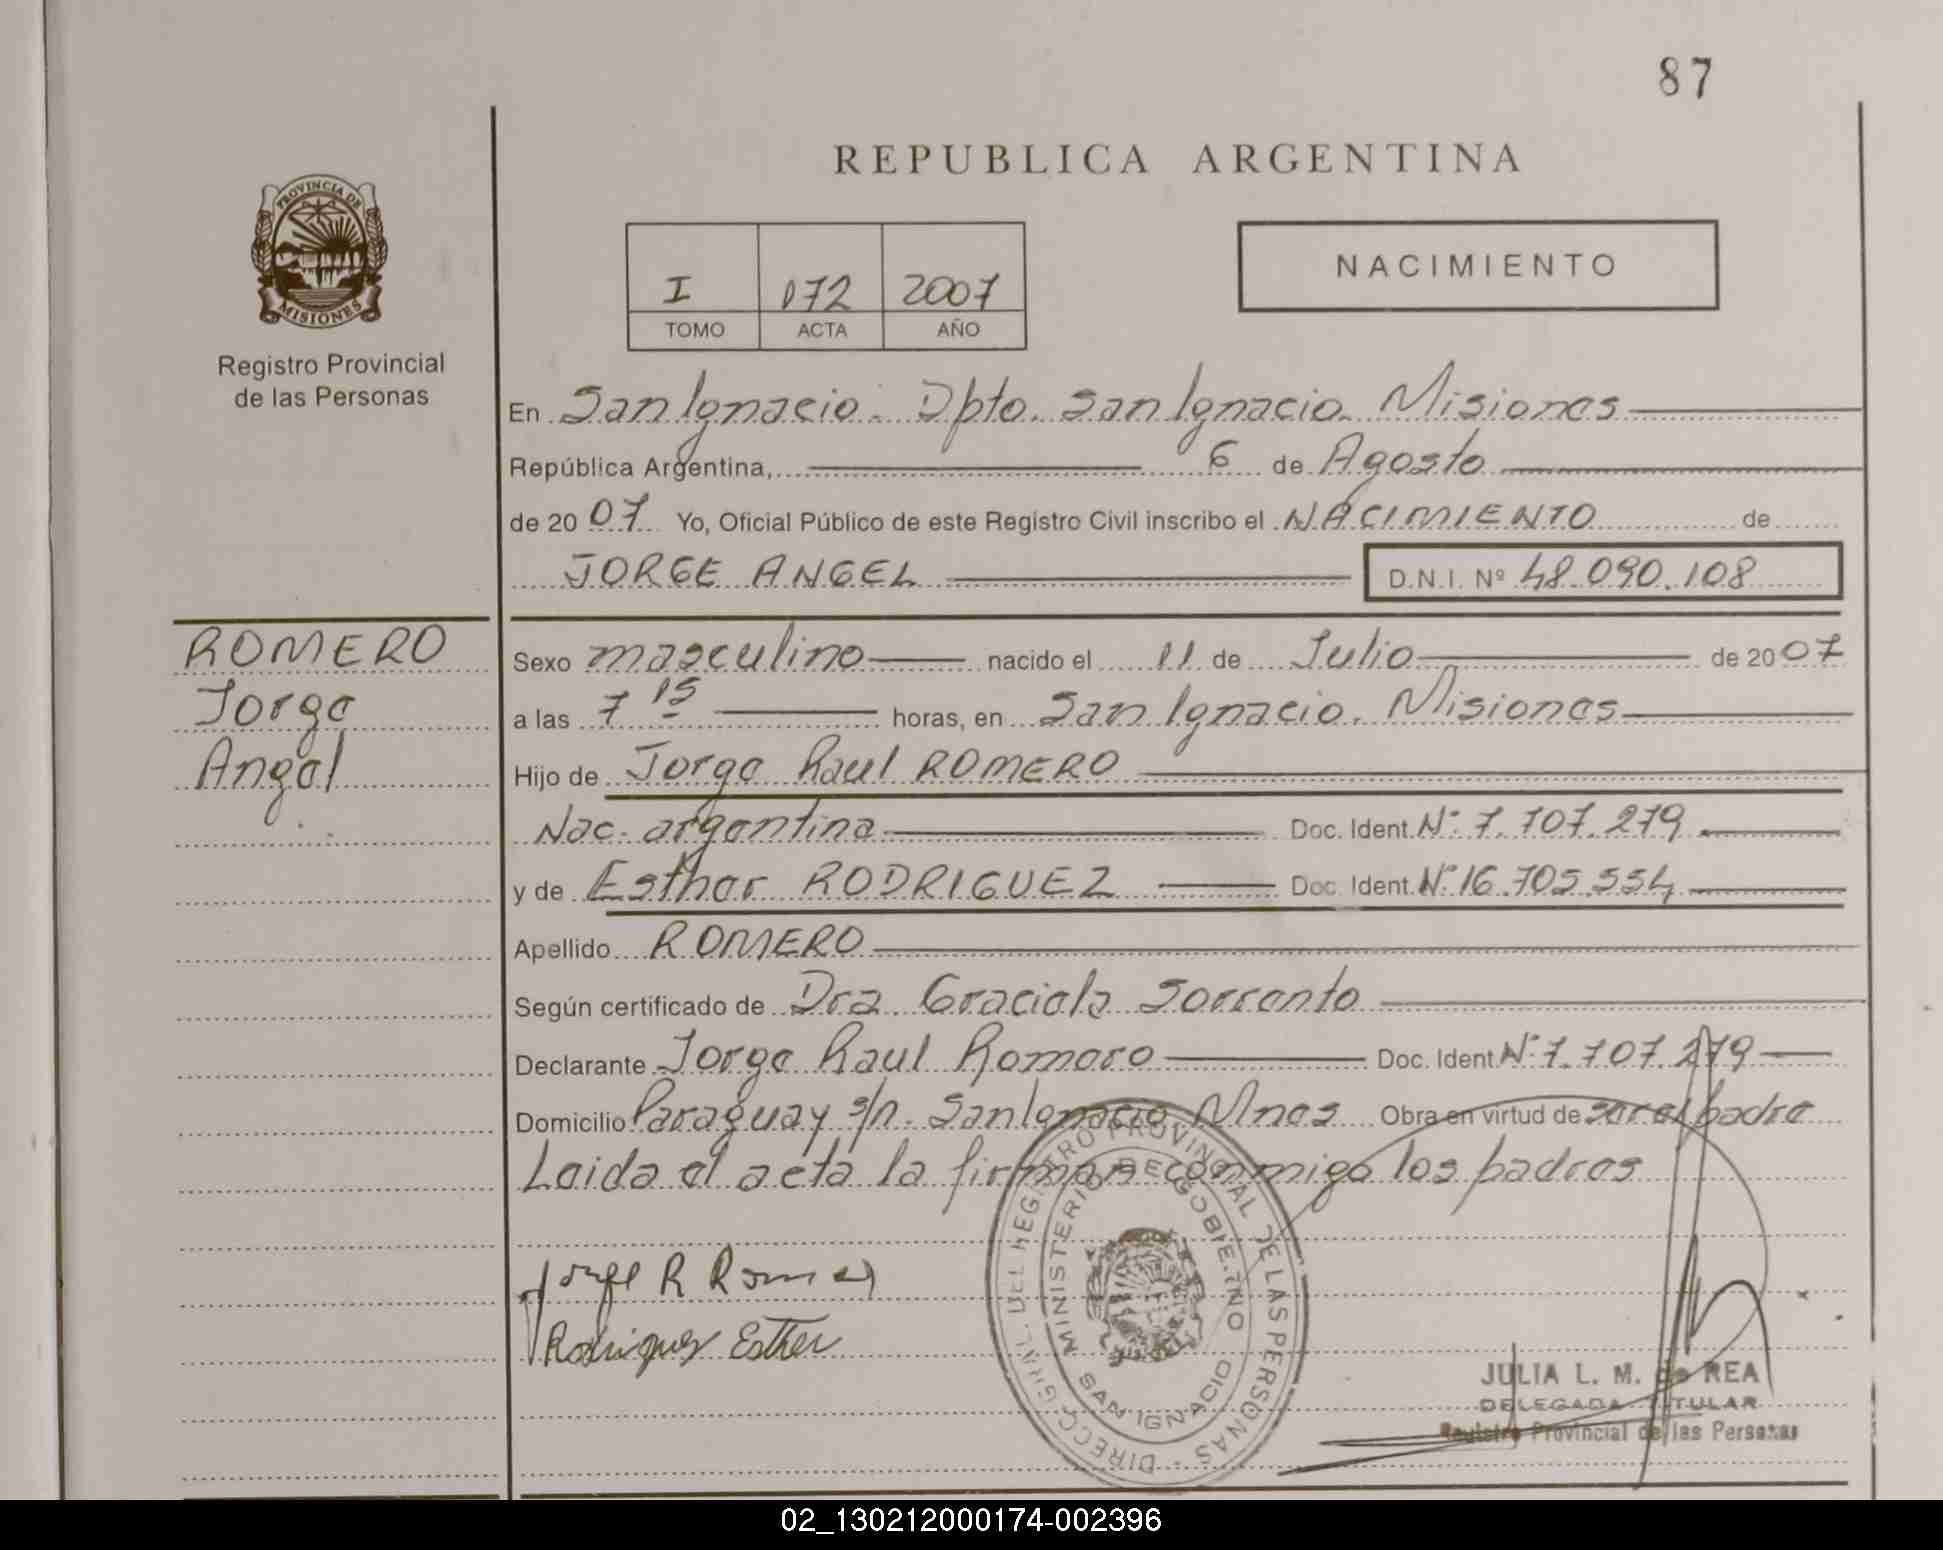 87
REPUBLICA ARGENTINA
PROVINCIA DE
MISIONES
Registro Provincial
de las Personas
I 172 2007
TOMO ACTA AÑO
NACIMIENTO
En San Ignacio. Dpto. San Ignacio. Misiones
República Argentina, 6 de Agosto
de 20 07 Yo, Oficial Público de este Registro Civil inscribo el NACIMIENTO de
JORGE ANGEL D.N.I. Nº 48.090.108
ROMERO
Jorge
Angel
Sexo masculino nacido el 11 de Julio de 20 07
a las 7 15 horas, en San Ignacio. Misiones
Hijo de Jorge Raul ROMERO
Nac. argentina Doc. Ident. Nº 7.707.279
y de Esther RODRIGUEZ Doc. Ident. Nº 16.705.554
Apellido ROMERO
Según certificado de Dra. Graciela Sorrento
Declarante Jorge Raul Romero Doc. Ident. Nº 7.707.279
Domicilio Paraguay s/n. San Ignacio Mnes Obra en virtud de ser el padre
Leida el acta la firman conmigo los padres
Jorge R Romero
Rodriguez Esther
DIRECC. GRAL. DEL REGISTRO PROVINCIAL DE LAS PERSONAS
MINISTERIO DE GOBIERNO
SAN IGNACIO
JULIA L. M. de REA
DELEGADA TITULAR
Registro Provincial de las Personas
02_130212000174-002396